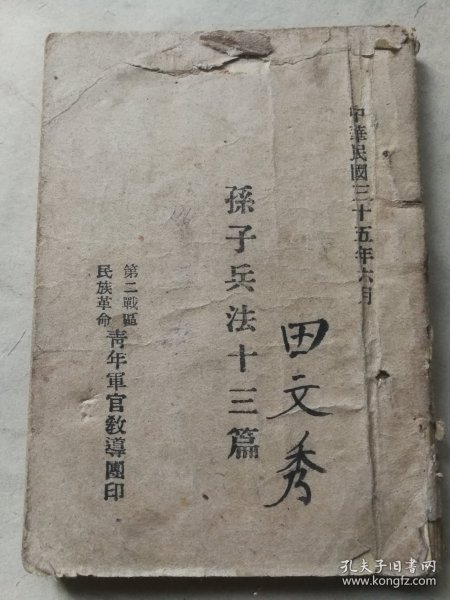 中華民國三十五年六月
孫子兵法十三篇
田文秀
第二戰區
民族革命
青年軍官教導團印
孔夫子旧书网
www.kongfz.com